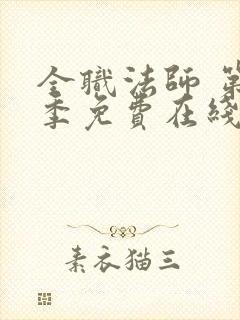 全職法師 第
季免費在綫
素衣猫三